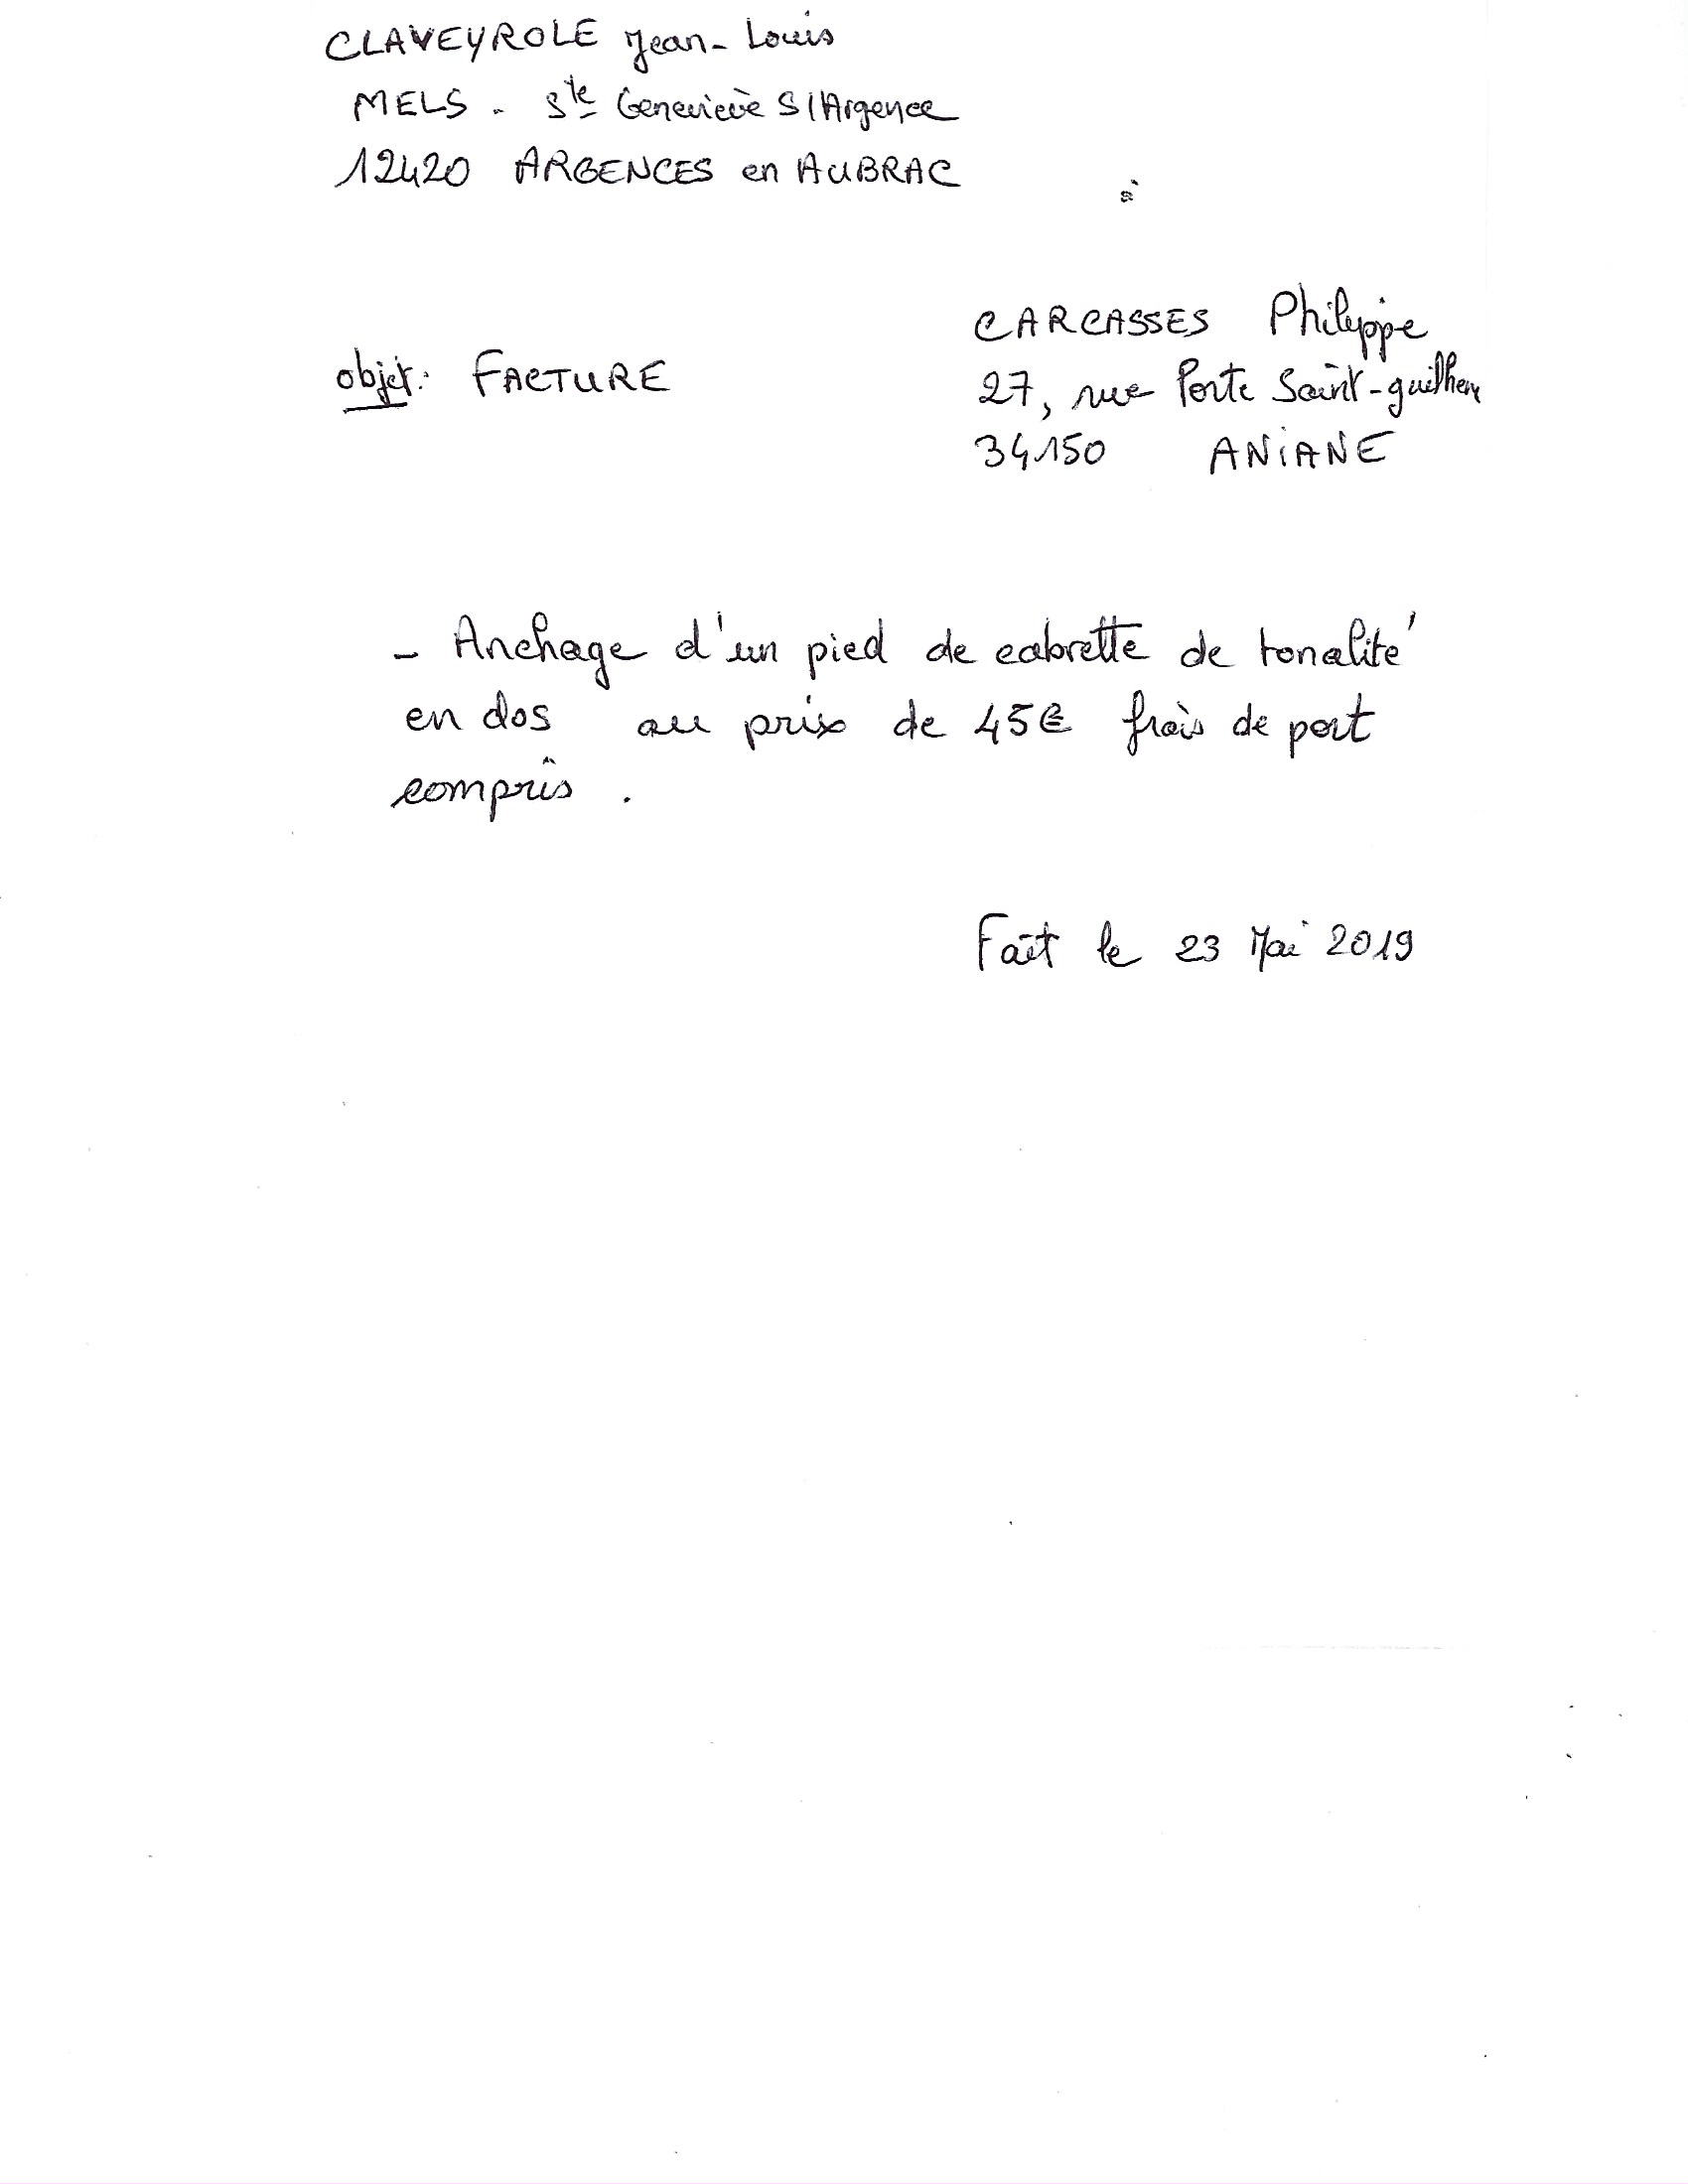 CLAVEYROLE Jean-Louis
MELS - Ste Geneviève S/Argence
12420 ARGENCES en AUBRAC
à
CARCASSES Philippe
objet: FACTURE
27, rue Porte Saint-guilhem
34150 ANIANE
- Anchage d'un pied de cabrette de tonalité
en dos au prix de 45€ frais de port
compris.
Fait le 23 Mai 2019